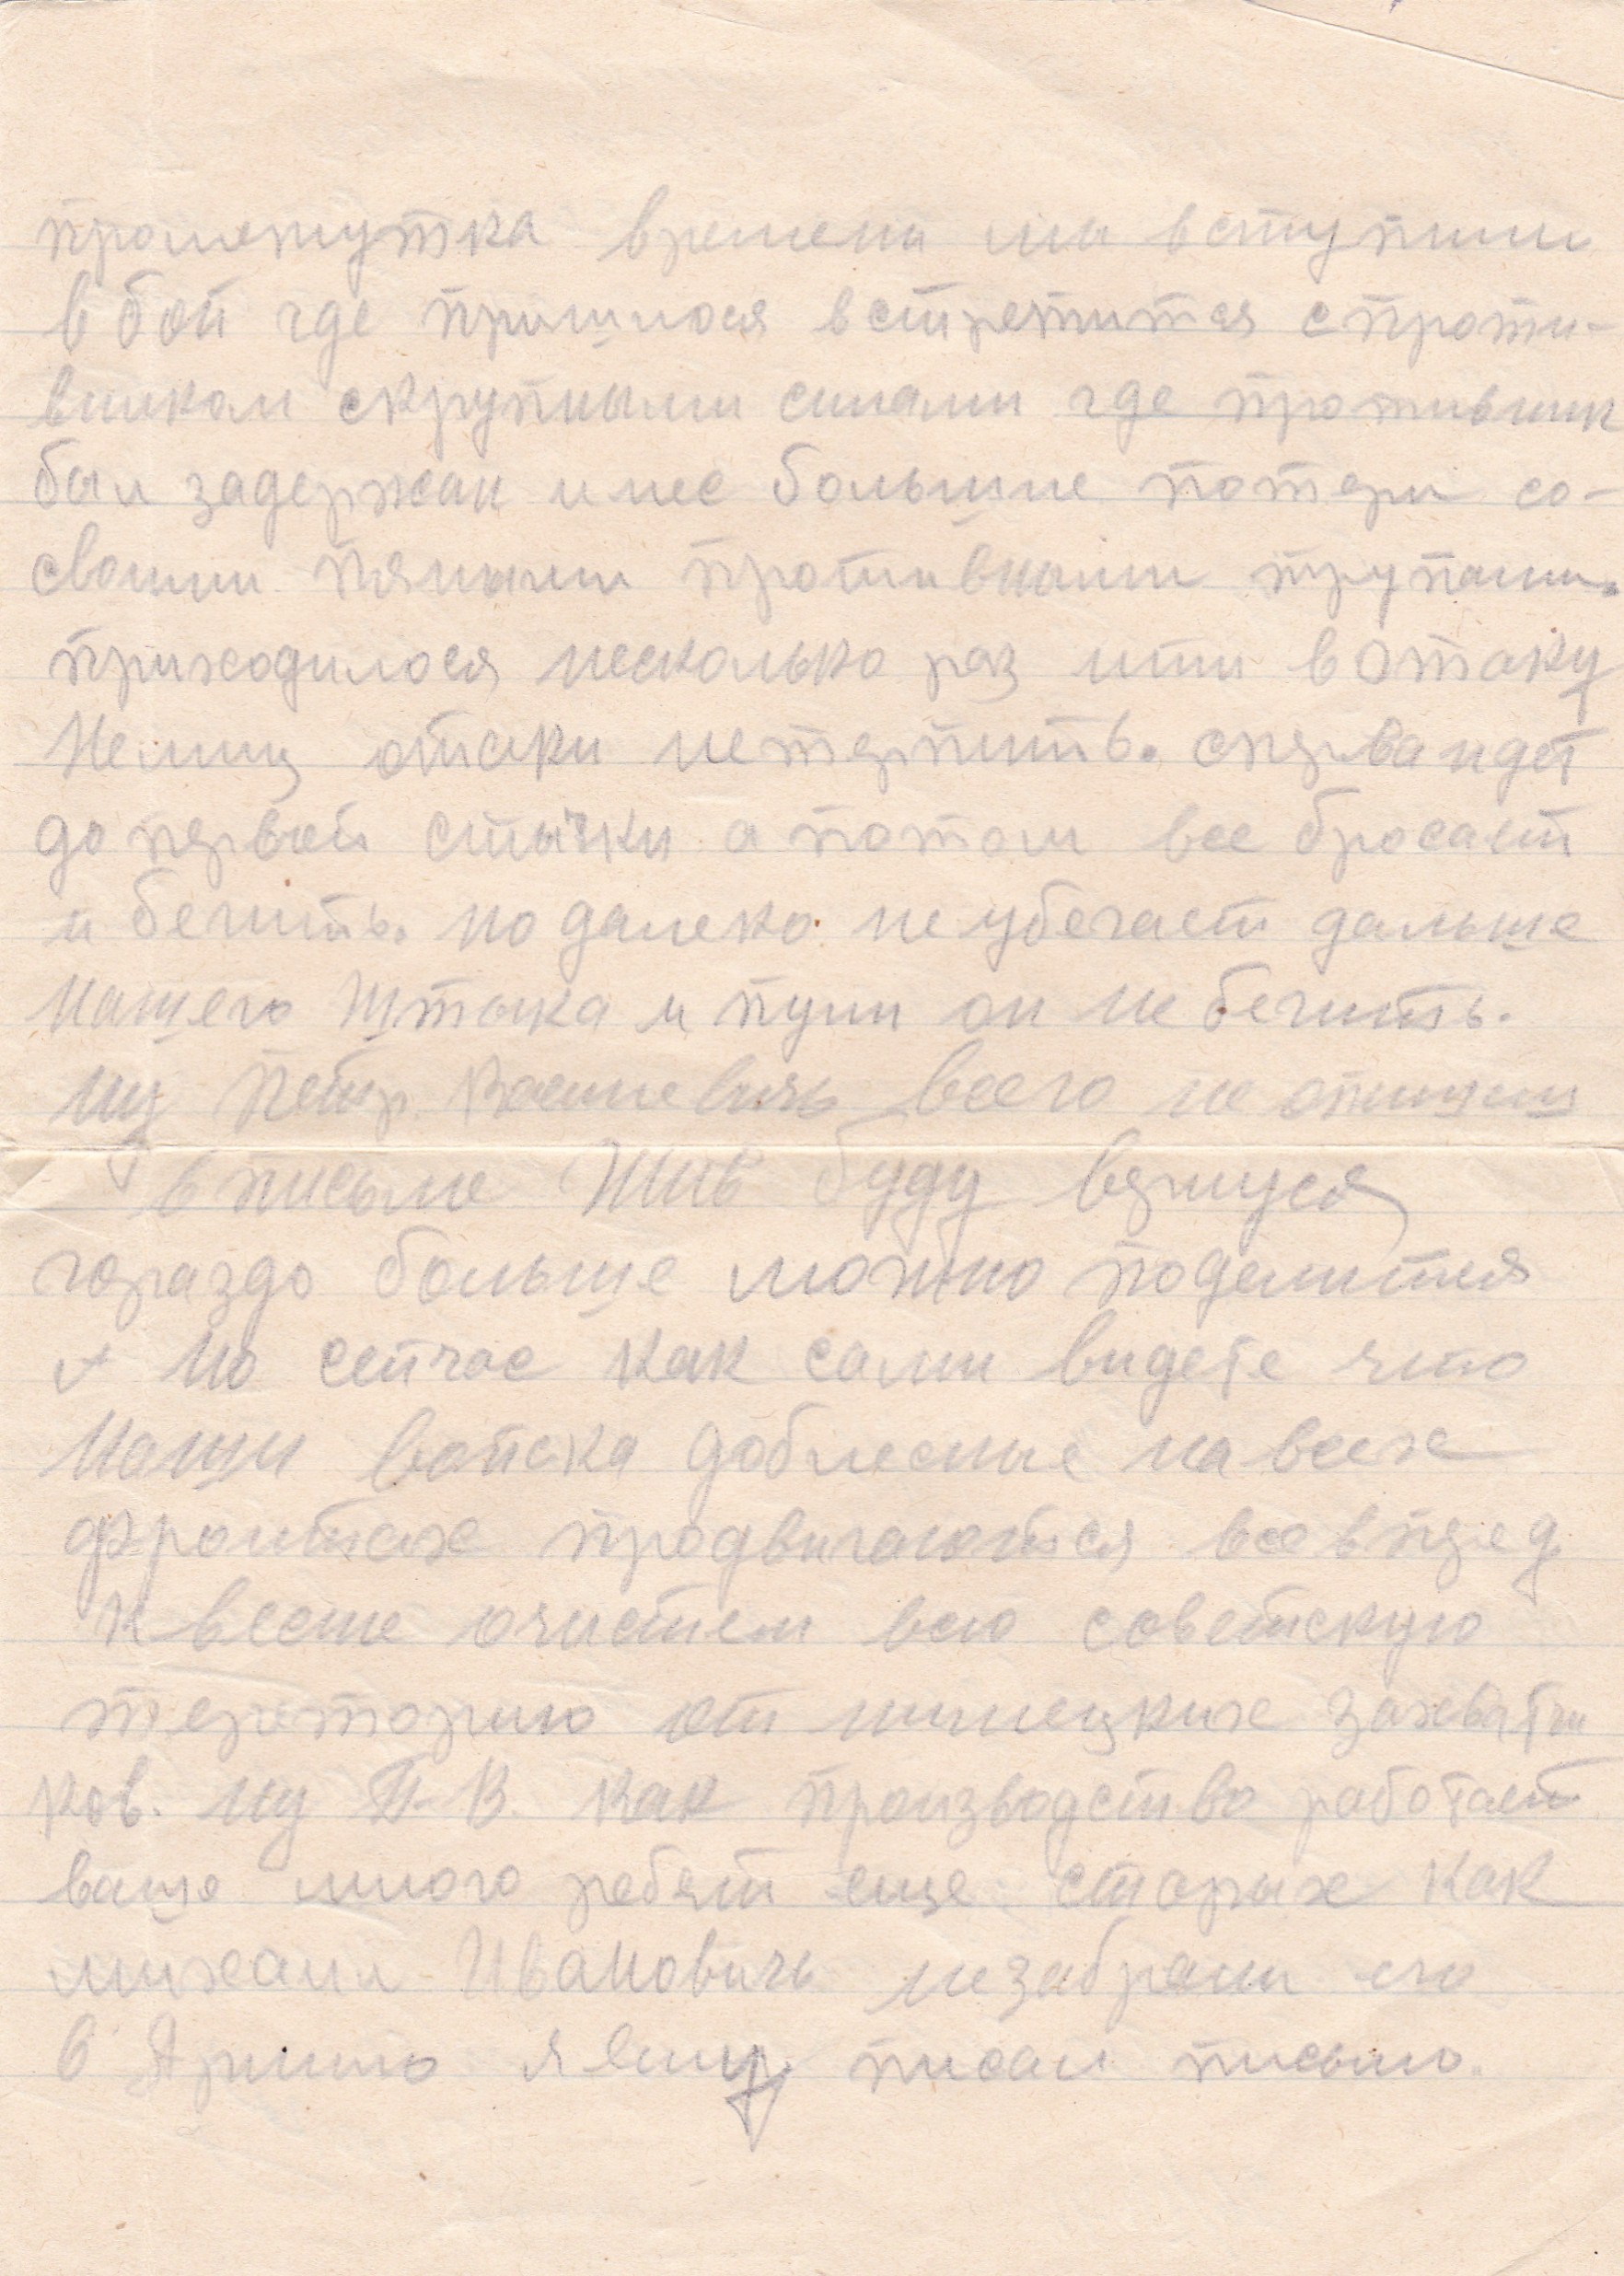 промежутка времени мы вступили
в бой где пришлося встретится спроти-
вником скрупными силами где противник
был задержан имее большие потери со-
своими пяными противными трупами.
приходилося несколько раз ити в отаку
Немиц отаки нетерпить. сперва идет
до первой стычки а потом все бросает
и бегить. но далеко не убегает дальше
нашего штыка и пули он не бегить.
ну Петр Васильевичь всего не опишеш
в письме Жив буду вернуся
гораздо больше можно поделится
и но сейчас как сами видете что
Наши войска доблесные на всех
фронтах продвигаются все вперед.
К весне очистем всю советскую
тереторию от нимецких захватчи
ков. ну П-В. как производство работает
ваше много ребят еще старых как
михаил Ивановичь незабрали его
в Армию я ему писал письмо.